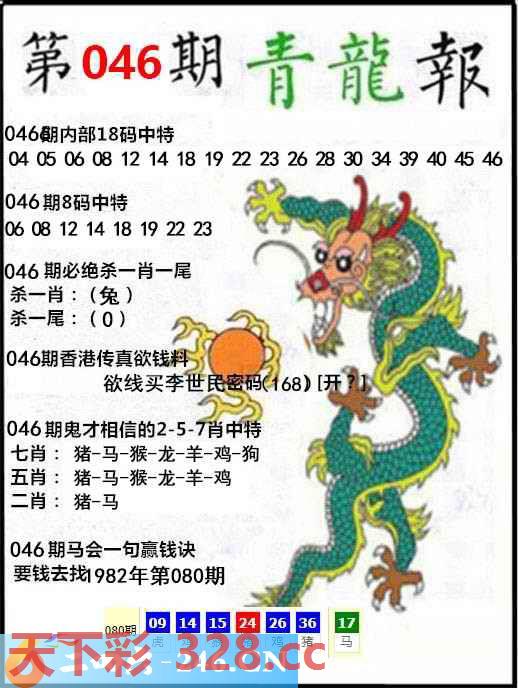 第046期青龍報
046期内部18码中特
04 05 06 08 12 14 18 19 22 23 26 28 30 34 39 40 45 46
046期8码中特
06 08 12 14 18 19 22 23
046期必绝杀一肖一尾
杀一肖：（兔）
杀一尾：（0）
046期香港传真欲钱料
欲线买李世民密码(168)[开?]
046期鬼才相信的2-5-7肖中特
七肖：猪-马-猴-龙-羊-鸡-狗
五肖：猪-马-猴-龙-羊-鸡
二肖：猪-马
046期马会一句赢钱诀
要钱去找1982年第080期
080期 09 14 15 24 26 36 17
虎 猪 马
天下彩-328.cc